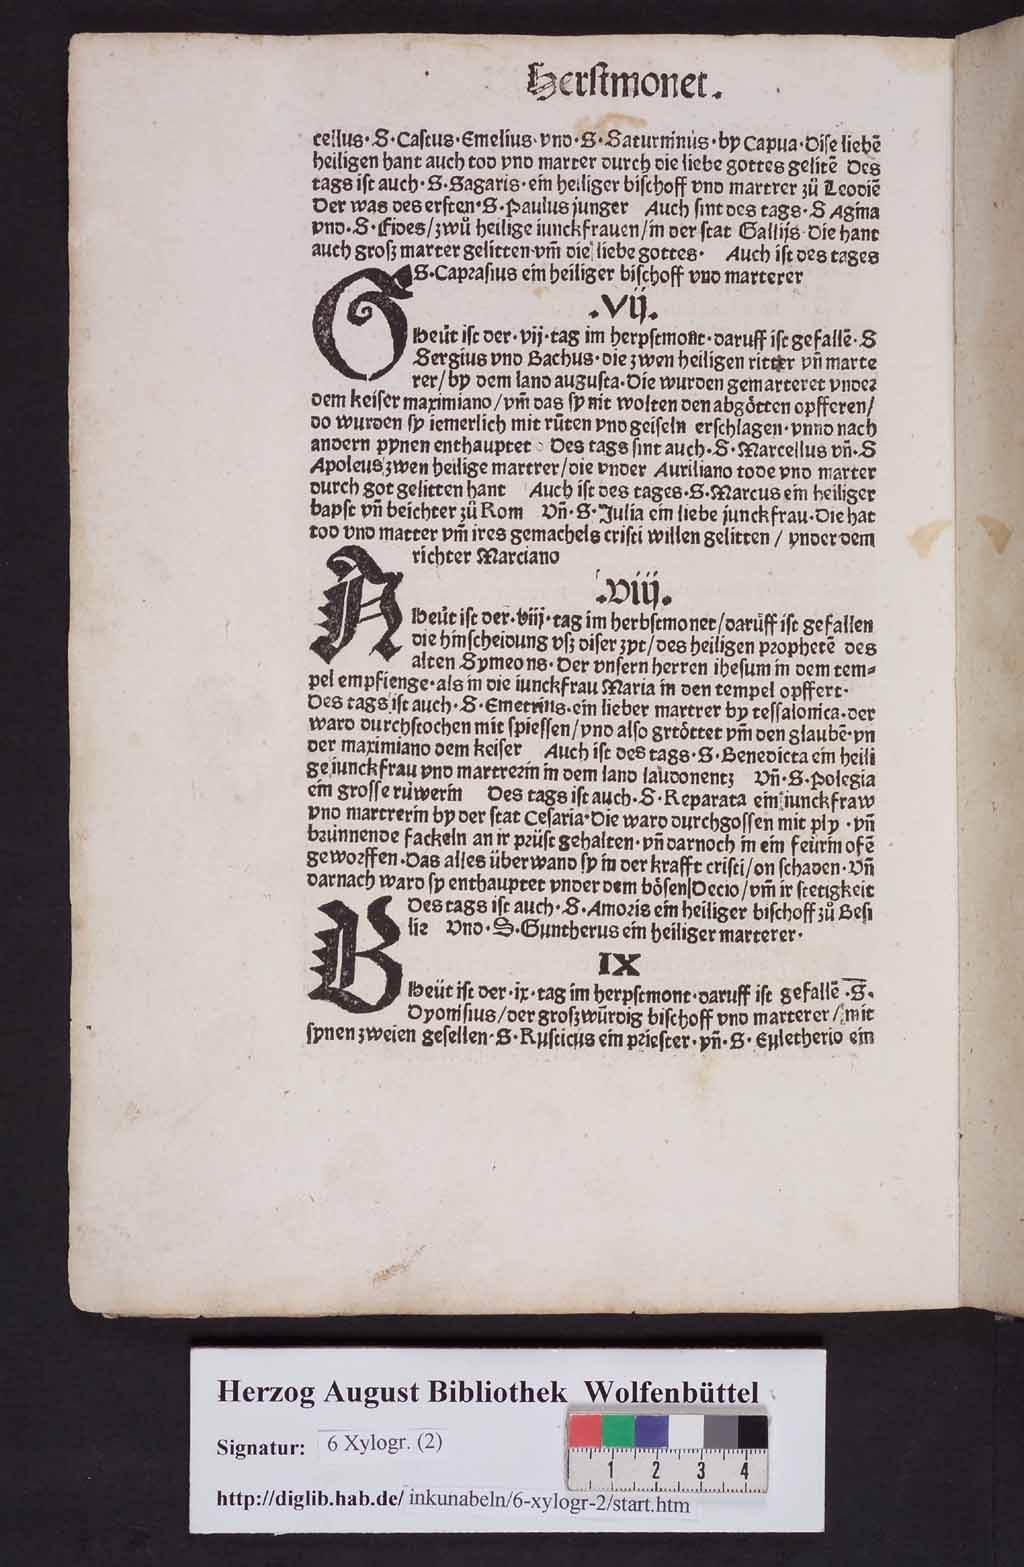 Herſtmonet.
cellus·S·Caſtus·Emelius·vnd·S·Saturninus·by Capua·Diſe liebē
heiligen hant auch tod vnd marter durch die liebe gottes gelitē Des
tags iſt auch·S·Sagaris·ein heiliger biſchoff vnd martrer zů Leodiē
Der was des erſten·S·Paulus junger Auch ſint des tags·S Agina
vnd·S·Fides/zwů heilige iunckfrauen/in der ſtat Gallijs·Die hant
auch groſz marter gelitten·vm̄ die liebe gottes· Auch iſt des tages
S·Capraſius ein heiliger biſchoff vnd marterer
.Vij.
G
Heüt iſt der·vij·tag im herpſtmont·daruff iſt gefallē·S
Sergius vnd Bachus·die zwen heiligen ritter vn̄ marte
rer/by dem land auguſta·Die wurden gemarteret vnder
dem keiſer maximiano/vm̄ das ſy nit wolten den abgötten opfferen/
do wurden ſy iemerlich mit růten vnd geiſeln erſchlagen·vnnd nach
andern pynen enthauptet Des tags ſint auch·S·Marcellus vn̄·S
Apoleus zwen heilige martrer/die vnder Auriliano tode vnd marter
durch got gelitten hant Auch iſt des tages·S·Marcus ein heiliger
bapſt vn̄ beichter zů Rom Vn̄·S·Julia ein liebe junckfrau·Die hat
tod vnd matter vm̄ ires gemachels criſti willen gelitten / vnder dem
richter Marciano
.Viij.
A
Heüt iſt der·viij·tag im herbſtmonet/daruff iſt gefallen
die hinſcheidung vſz diſer zyt/des heiligen prophetē des
alten Symeons·Der vnſern herren iheſum in dem tem⸗
pel empfienge·als in die iunckfrau Maria in den tempel opffert·
Des tags iſt auch·S·Emetrius·ein lieber martrer by teſſalonica·der
ward durchſtochen mit ſpieſſen/vnd alſo grtöttet vm̄ den glaubē·vn
der maximiano dem keiſer Auch iſt des tags·S·Benedicta ein heili
ge iunckfrau vnd martrerin in dem land laudonentz Vn̄·S·Polegia
ein groſſe rüwerin Des tags iſt auch·S·Reparata ein iunckfraw
vnd martrerin by der ſtat Ceſaria·Die ward durchgoſſen mit ply ·vn̄
brünnende fackeln an ir prüſt gehalten·vn̄ darnoch in ein feürin ofē
geworffen·Das alles überwand ſy in der krafft criſti/on ſchaden·Vn̄
darnach ward ſy enthauptet vnder dem böſen Decio/vm̄ ir ſtetigkeit
Des tags iſt auch·S·Amoris ein heiliger biſchoff zů Beſi
lie Vnd·S·Guntherus ein heiliger marterer·
IX
B
Heüt iſt der·ix·tag im herpſtmont·daruff iſt gefallē·S·
Dyoniſius/der groſzwürdig biſchoff vnd marterer/mit
ſynen zweien geſellen·S·Ruſticus ein prieſter·vn̄·S·Euletherio ein
Herzog August Bibliothek Wolfenbüttel
Signatur: 6 Xylogr. (2)
1 2 3 4
http://diglib.hab.de/inkunabeln/6-xylogr-2/start.htm